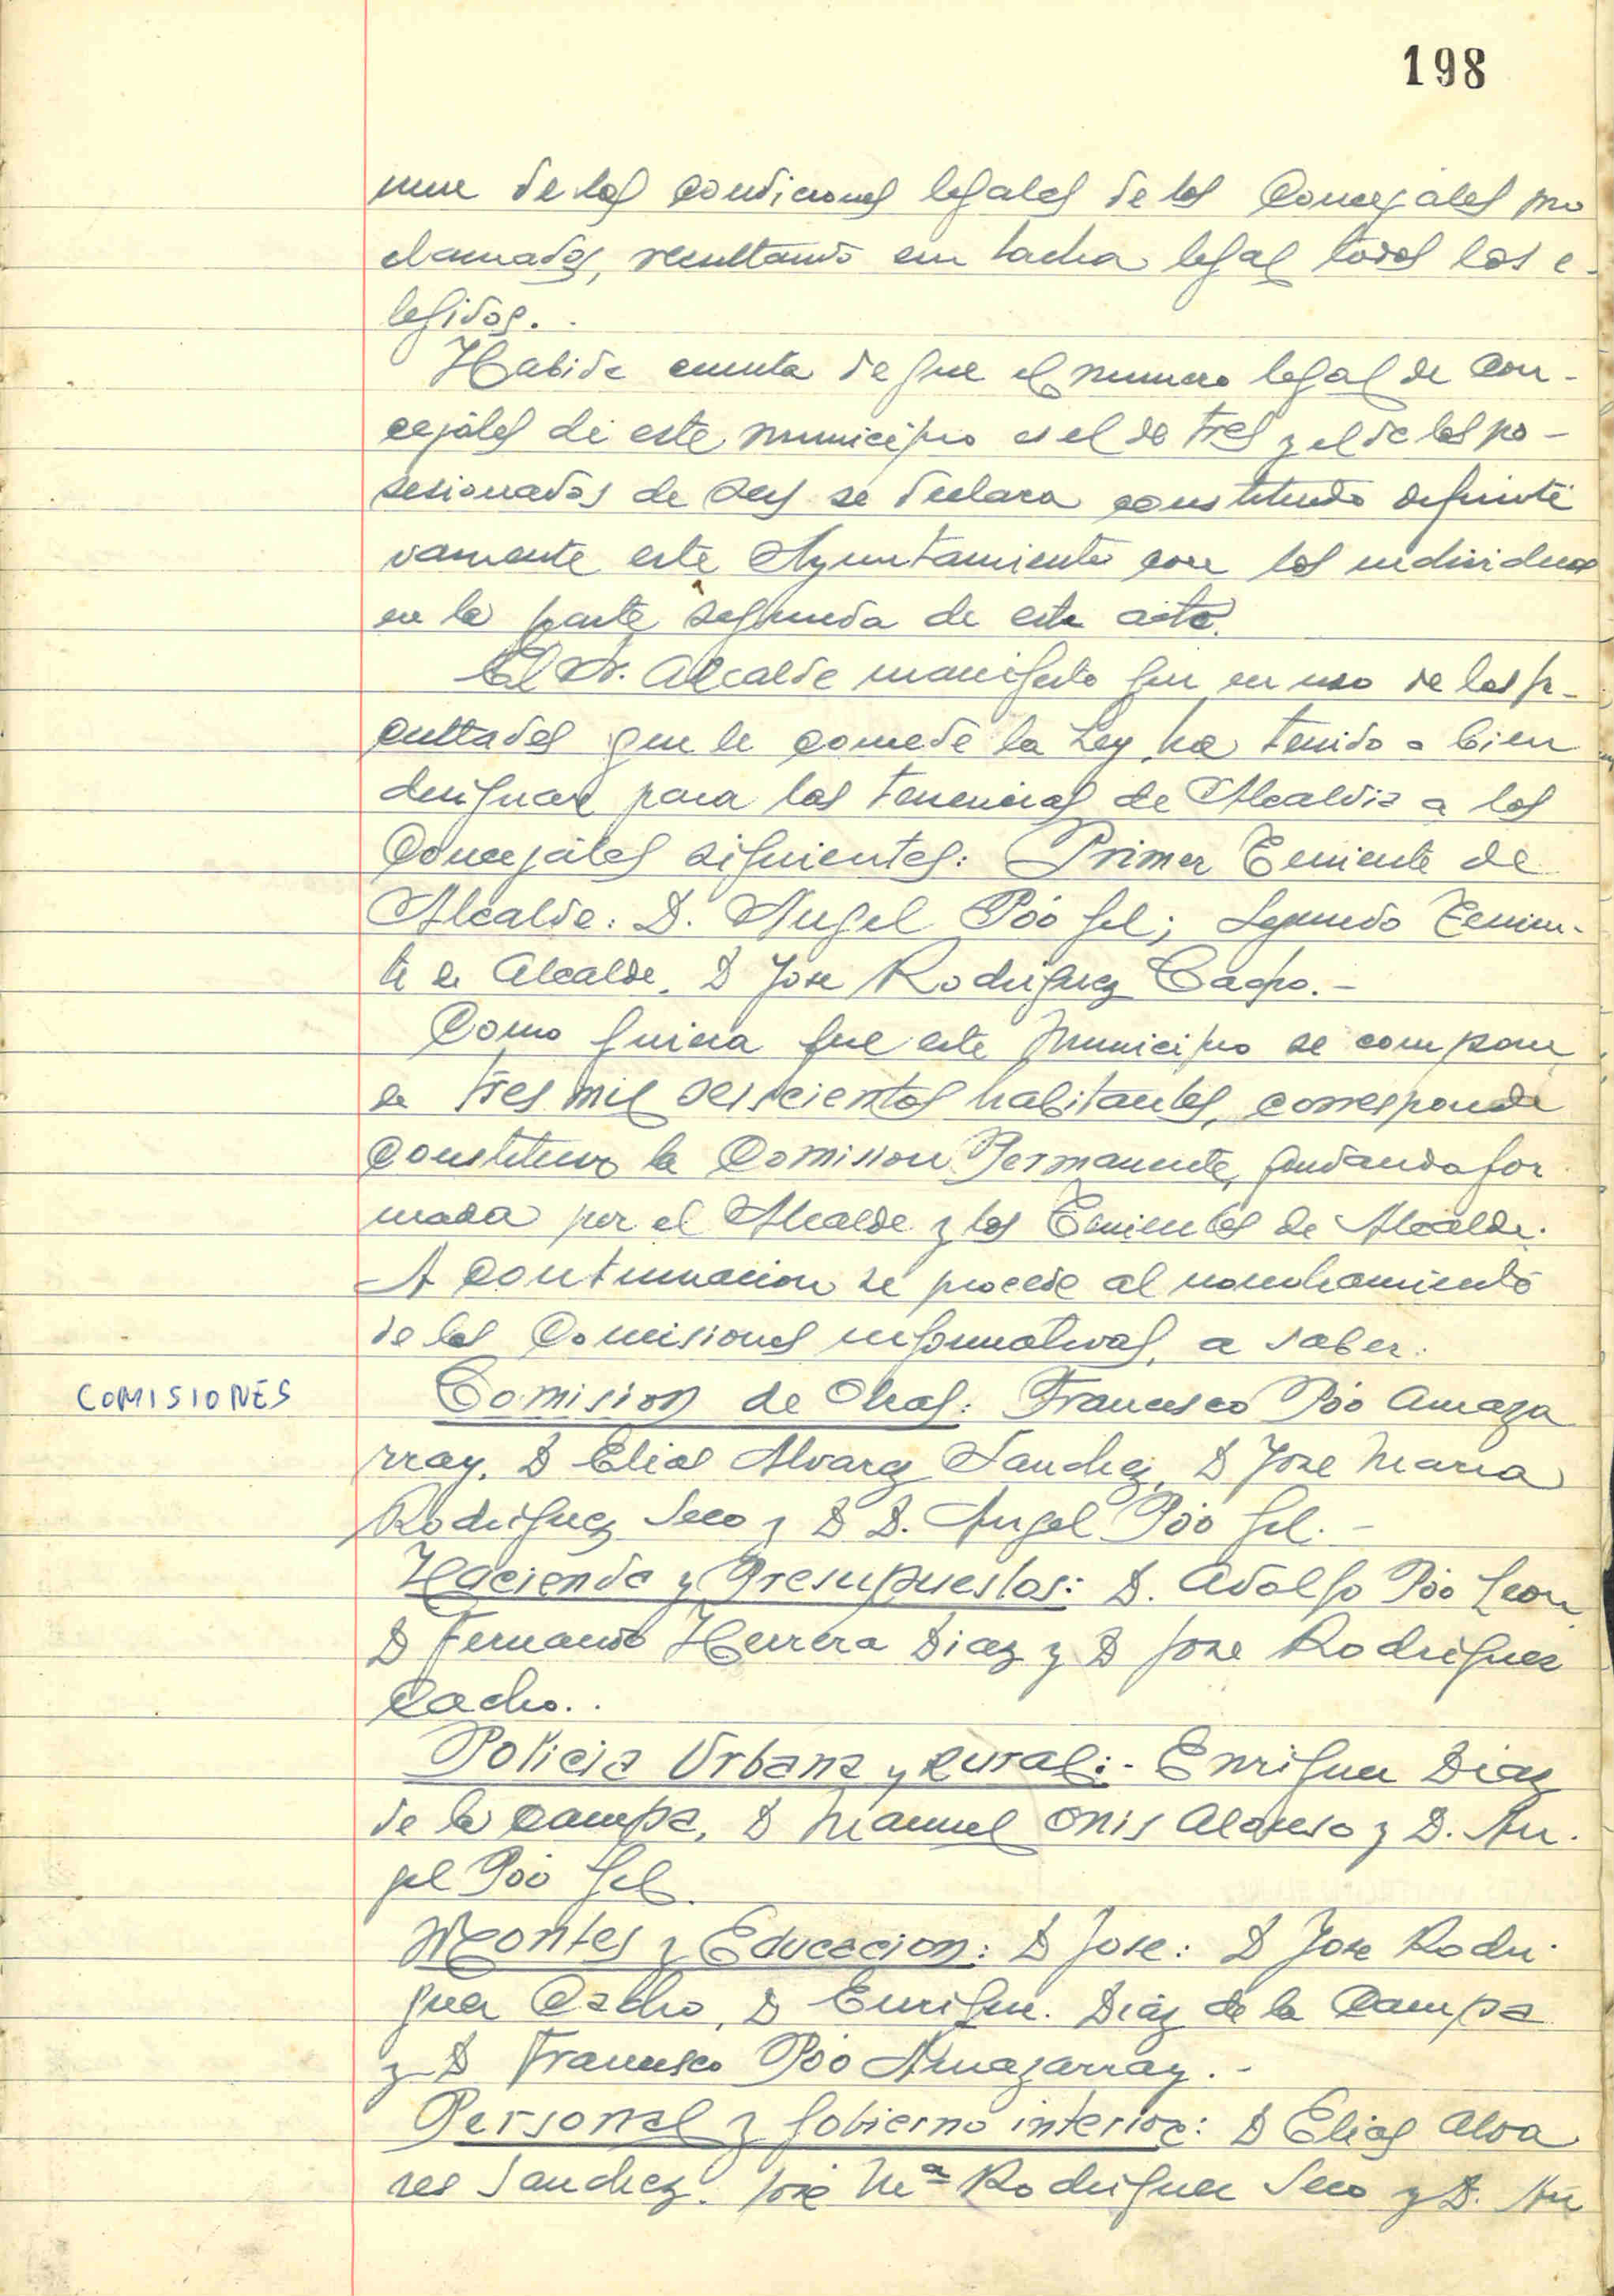 198
de las condiciones legales de los Concejales pro
clamados, resultando sin tacha legal todos los e-
legidos.
Habida cuenta de que el numero legal de Con-
cejáles de este municipio es el de tres y el de los po-
sesionados de seis se declara constituido definiti
vamente este Ayuntamiento con los individuos
en la parte segunda de este acta.
El Sr. Alcalde manifesto que en uso de las fa-
cultades que le concede la Ley, ha tenido a bien
designar para las tenencias de Alcaldia a los
Concejáles siguientes: Primer Teniente de
Alcalde: D. Angel Póo Gil; Segundo Tenien-
te de Alcalde. D Jose Rodriguez Cacho.-
Como quiera que este municipio se compone
de tres mil seiscientos habitantes, corresponde
constituir la Comision Permanente, quedando for
mada por el Alcalde y los Tenientes de Alcalde.
A continuacion se procede al nombramiento
de las Comisiones informativas, a saber:
COMISIONES
Comision de Obras: Francisco Póo Amaza
rray. D Elias Alvarez Sanchez, D Jose Maria
Rodriguez Seco y D D. Angel Póo Gil. -
Hacienda y Presupuestos: D. Adolfo Póo Leon
D Fernando Herrera Diaz y D Jose Rodriguez
Cacho..
Policia Urbana y Rural:- Enrique Diaz
de la Campa, D Manuel Onis Alonso y D. An-
gel Póo Gil.
Montes y Educacion: D Jose: D Jose Rodri-
guez Cacho, D Enrique. Diáz de la Campa
y D Francisco Póo Amazarray. -
Personal y Gobierno interior: D Elias Alva
rez Sanchez. José Mª Rodriguez Seco y D. An